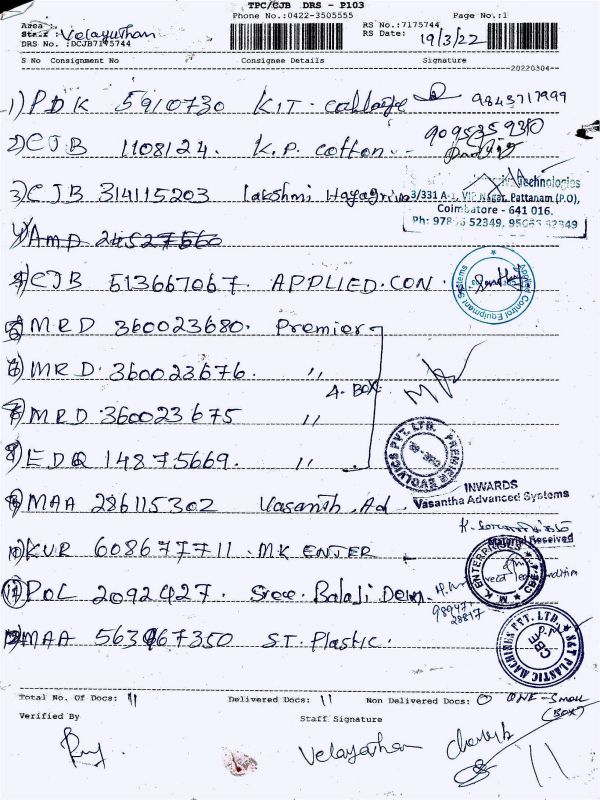 TPC/CJB DRS - P103
Phone No.:0422-3505555 Page No.:1
Area :
Staff : Velayuthan RS No.:7175744
DRS No. :DCJB7175744 RS Date: 19/3/22
S No Consignment No Consignee Details Signature
20220304
1) PDK 5910730 KIT. college 9843717999
2) CJB 1108124. K.P. cotton.
3) CJB 314115203 Lakshmi Hayagriva
Technologies
3/331 A-1, VIP Nagar, Pattanam (P.O),
Coimbatore - 641 016.
4) AMD 24527560
CJB 513667067. APPLIED. CON.
Applied Control Equipment Systems
MRD 360023680. Premier
MRD. 360023676. 〃
4. BOX
7) MRD 360023675 〃
8) EDQ 14875669. 〃
PREMIER EVOLVICS PVT. LTD.
INWARDS
Vasantha Advanced Systems
9) MAA 286115302 Vasanth. Ad
Material Received
10) KUR 608677711. MK ENTER
M.K. ENTERPRISES
11) POL 2092427. Sree. Balaji Dewn.
98947
28817
12) MAA 563967350 S.T. Plastic.
S&T PLASTIC MACHINES PVT.LTD.
CBE
Total No. Of Docs: 11 Delivered Docs: 11 Non Delivered Docs: 0 ONE-Small
(BOX)
Verified By Staff Signature
Velayuthan
11